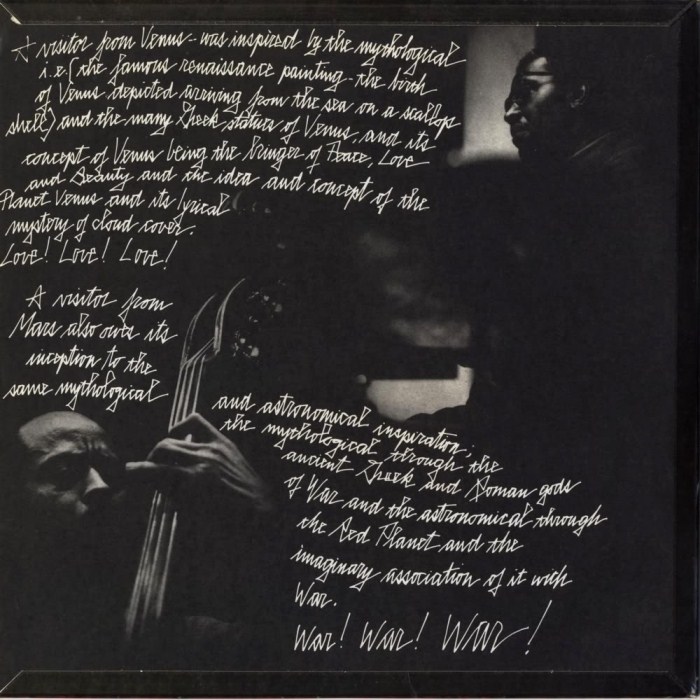 A visitor from Venus - was inspired by the mythological
i.e. (the famous renaissance painting - the birth
of Venus depicted arriving from the sea on a scallops
shell) and the many Greek statues of Venus, and its
concept of Venus being the Bringer of Peace, Love
and Beauty and the idea and concept of the
Planet Venus and its lyrical
mystery of cloud cover.
Love! Love! Love!
A visitor from
Mars also owes its
inception to the
same mythological
and astronomical inspiration;
the mythological through the
ancient Greek and Roman gods
of War and the astronomical through
the Red Planet and the
imaginary association of it with
War.
War! War! War!